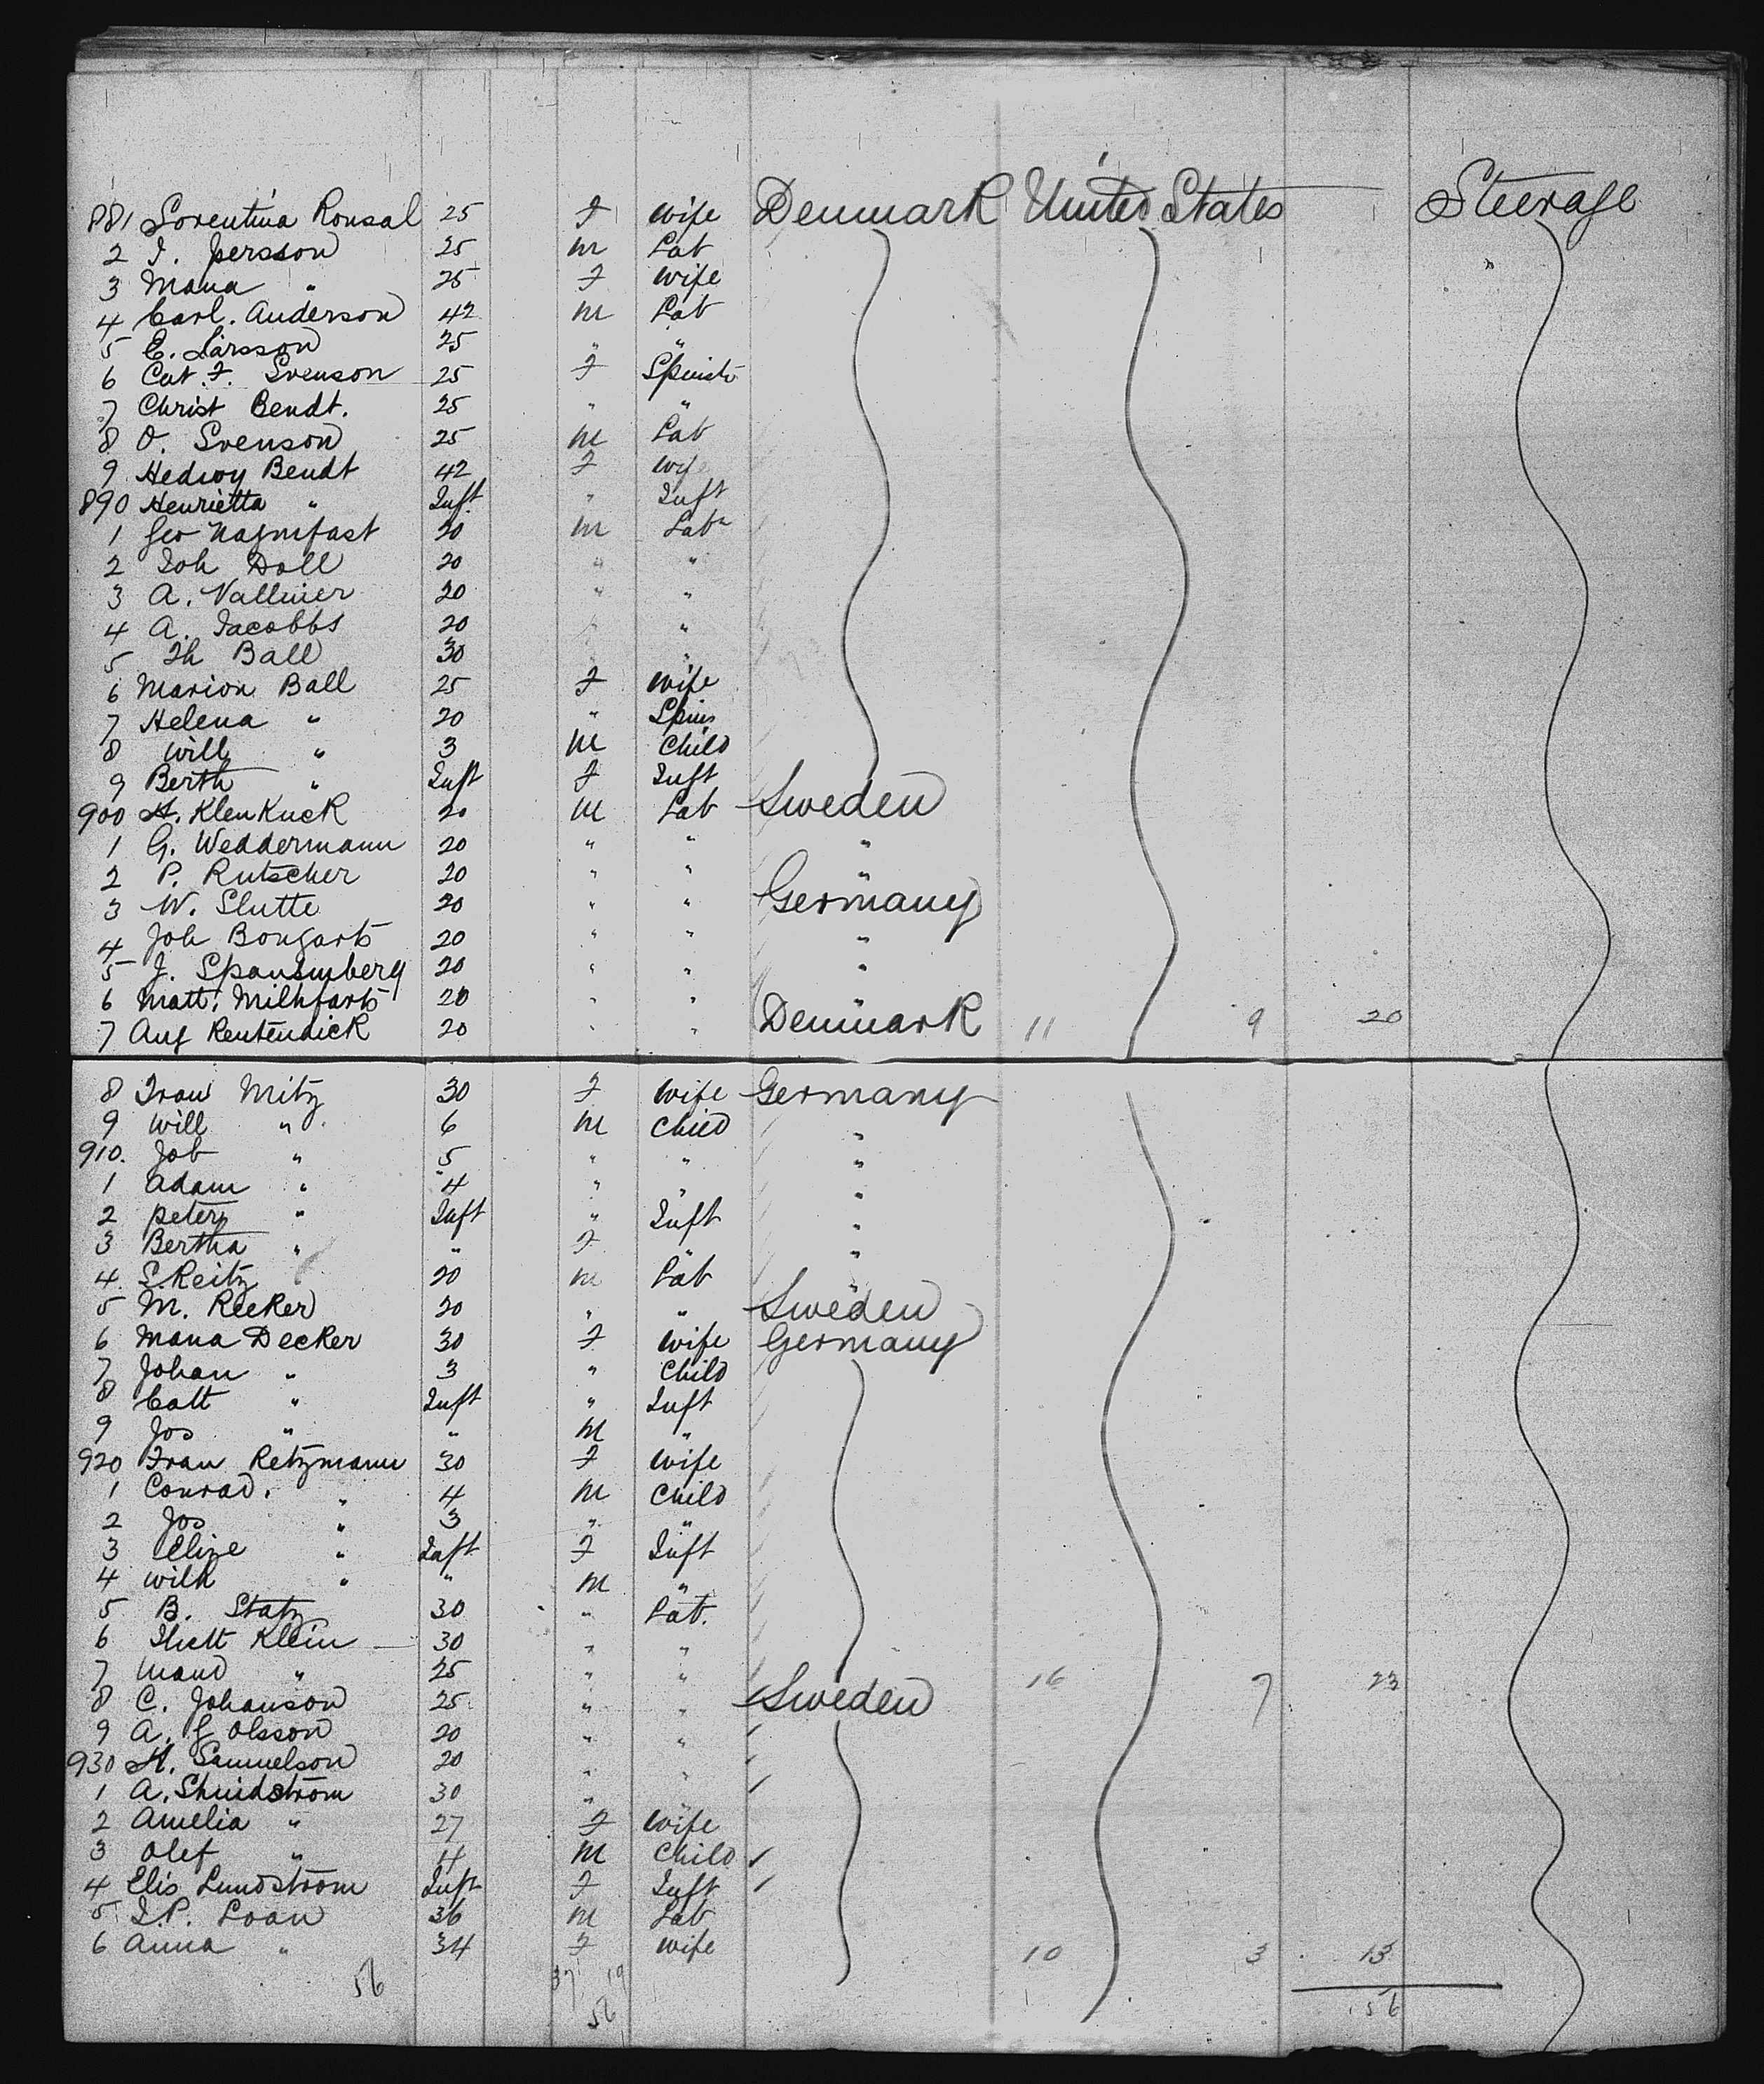 881 Sorentina Ronsal 25 F wife Denmark United States Steerage
2 I. Persson 25 m Lab
3 Maria " 25 F wife
4 Carl. Anderson 42 m Lab
5 E. Larsson 25 " "
6 Cat. F. Svenson 25 F Spinstr
7 Christ Bendt. 25 " "
8 O. Svenson 25 m Lab
9 Hedwy Bendt 42 F wife
890 Henrietta " Inft " Inft
1 Geo 20 m Labr
2 Joh Doll 20 " "
3 A. Vallinier 20 " "
4 A. Jacobbs 20 " "
5 Th Ball 30 " "
6 Marion Ball 25 F wife
7 Helena " 20 " Spins
8 Will " 3 m Child
9 Berth " Inft F Inft
900 H. Klenkuck 20 m Lab Sweden
1 G. Weddermann 20 " " "
2 P. Rutscher 20 " " "
3 W. Slutte 20 " " Germany
4 Joh Bongarts 20 " " "
5 J. 20 " " "
6 Matt. Milhfarts 20 " " "
7 Aug Rentendick 20 " " Denmark 11 9 20
8 Frau Mitz 30 F wife Germany
9 Will " 6 m Child "
910. Job " 5 " " "
1 Adam " 4 " " "
2 Peter " Inft " Inft "
3 Bertha " " F "
4 S. Reitz 20 m Lab "
5 M. Recker 20 " " Sweden
6 Maria Decker 30 F wife Germany
7 Johan " 3 " Child
8 Catt " Inft " Inft
9 Jos " " m "
920 Frau Retzmann 30 F wife
1 Conrad. " 4 m Child
2 Jos " 3 " "
3 Elize " Inft F Inft
4 Wilh " " m "
5 B. Statz 30 " Lab.
6 Klein 30 " "
7 Maud " 25 " " 16 7 23
8 C. Johanson 25 " " Sweden
9 A. G Olsson 20 " "
930 H. Samuelson 20 " "
1 A. Shmidstrom 30 " "
2 Amelia " 27 F wife
3 Olef " 4 m Child
4 Elis Lundstrom Inft F Inft
5 I.P. Loan 36 m Lab
6 Anna " 34 F wife 10 3 13
56 37 19 56
56